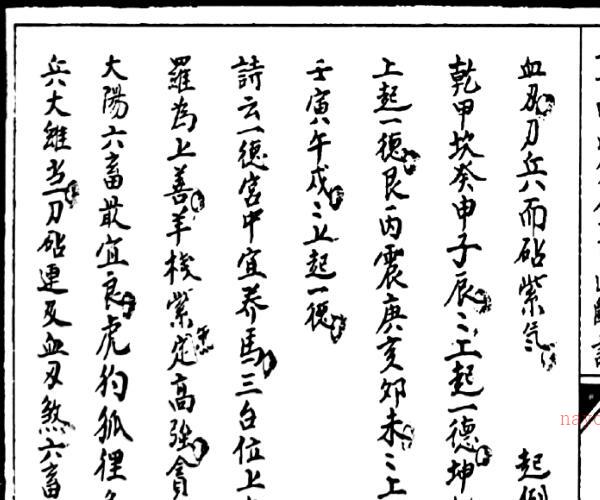 血刃刀兵而砧紫氣 起例
乾甲坎癸申子辰〻上起一德坤
上起一德艮丙震庚亥卯未〻上
壬寅午戌〻上起一德
詩云一德宮中宜养馬三台位上
羅為上善羊棧紫定高強貪
大陽六畜最宜良虎狗狐狸
兵大雄当刀砧連及血刃煞六畜